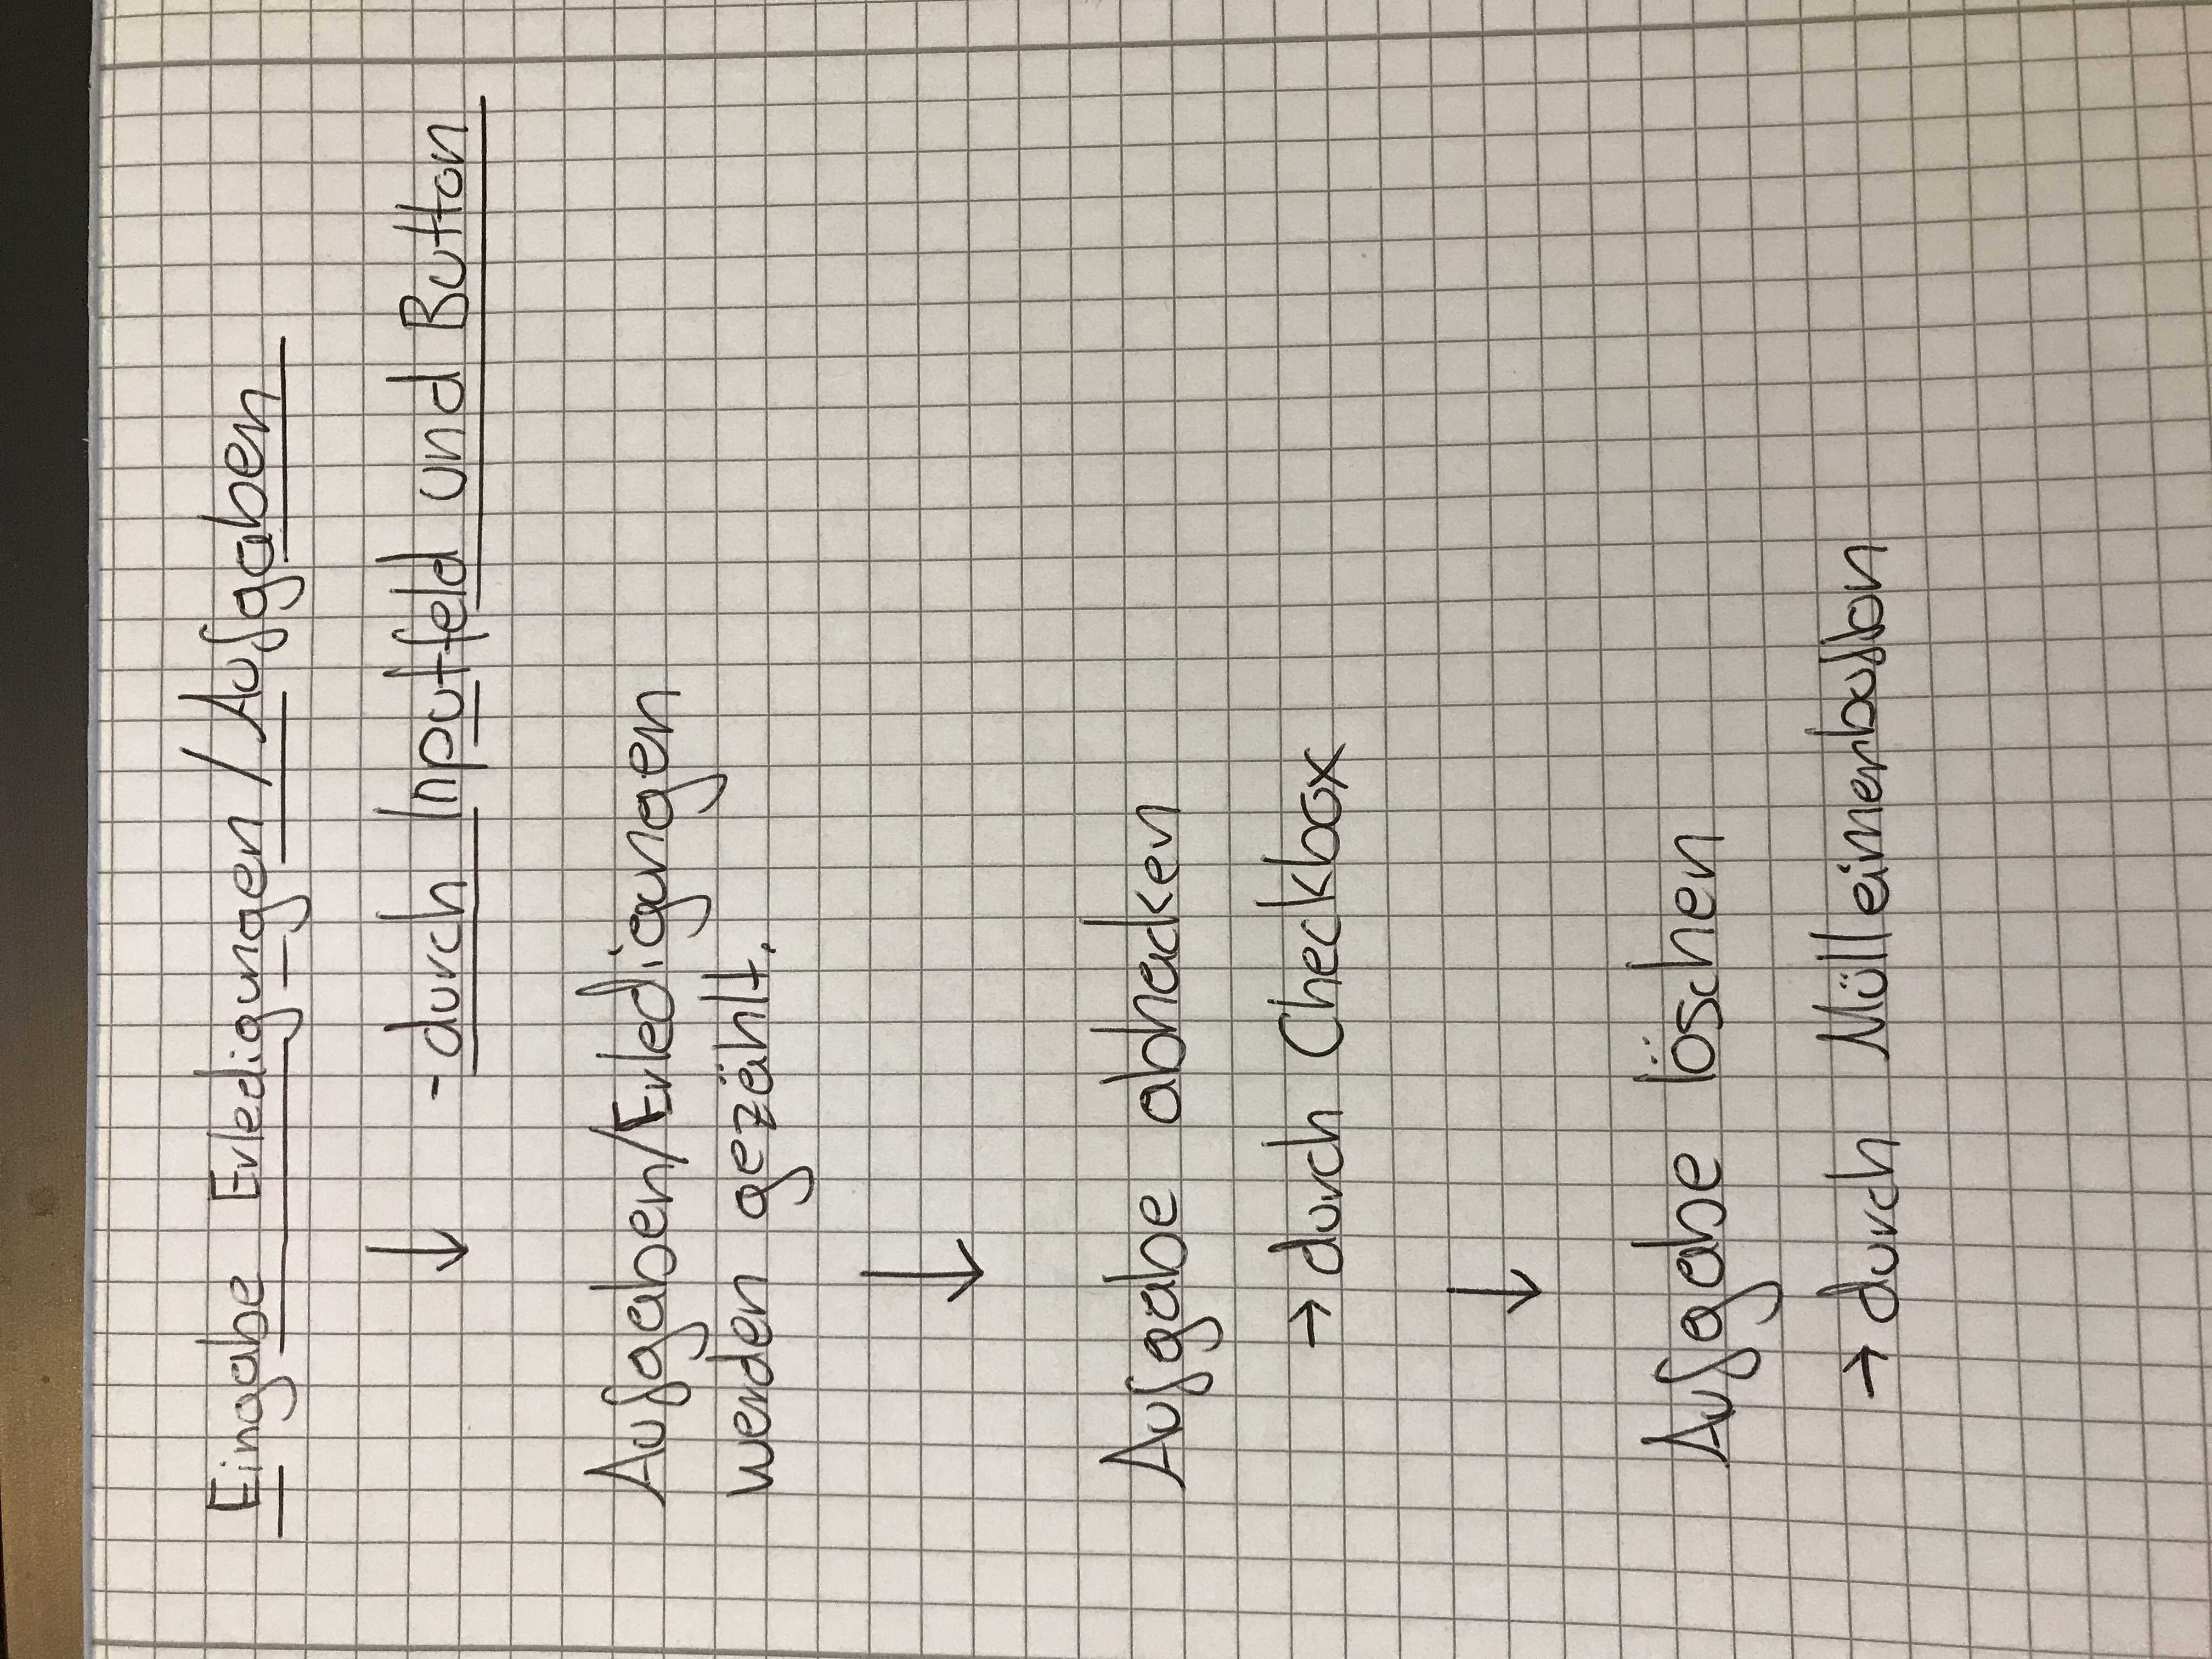 Eingabe Erledigungen / Aufgaben
↓ - durch Inputfeld und Button
Aufgaben/Erledigungen
werden gezählt.
↓
Aufgabe abhacken
→ durch Checkbox
↓
Aufgabe löschen
→ durch Mülleimerbutton